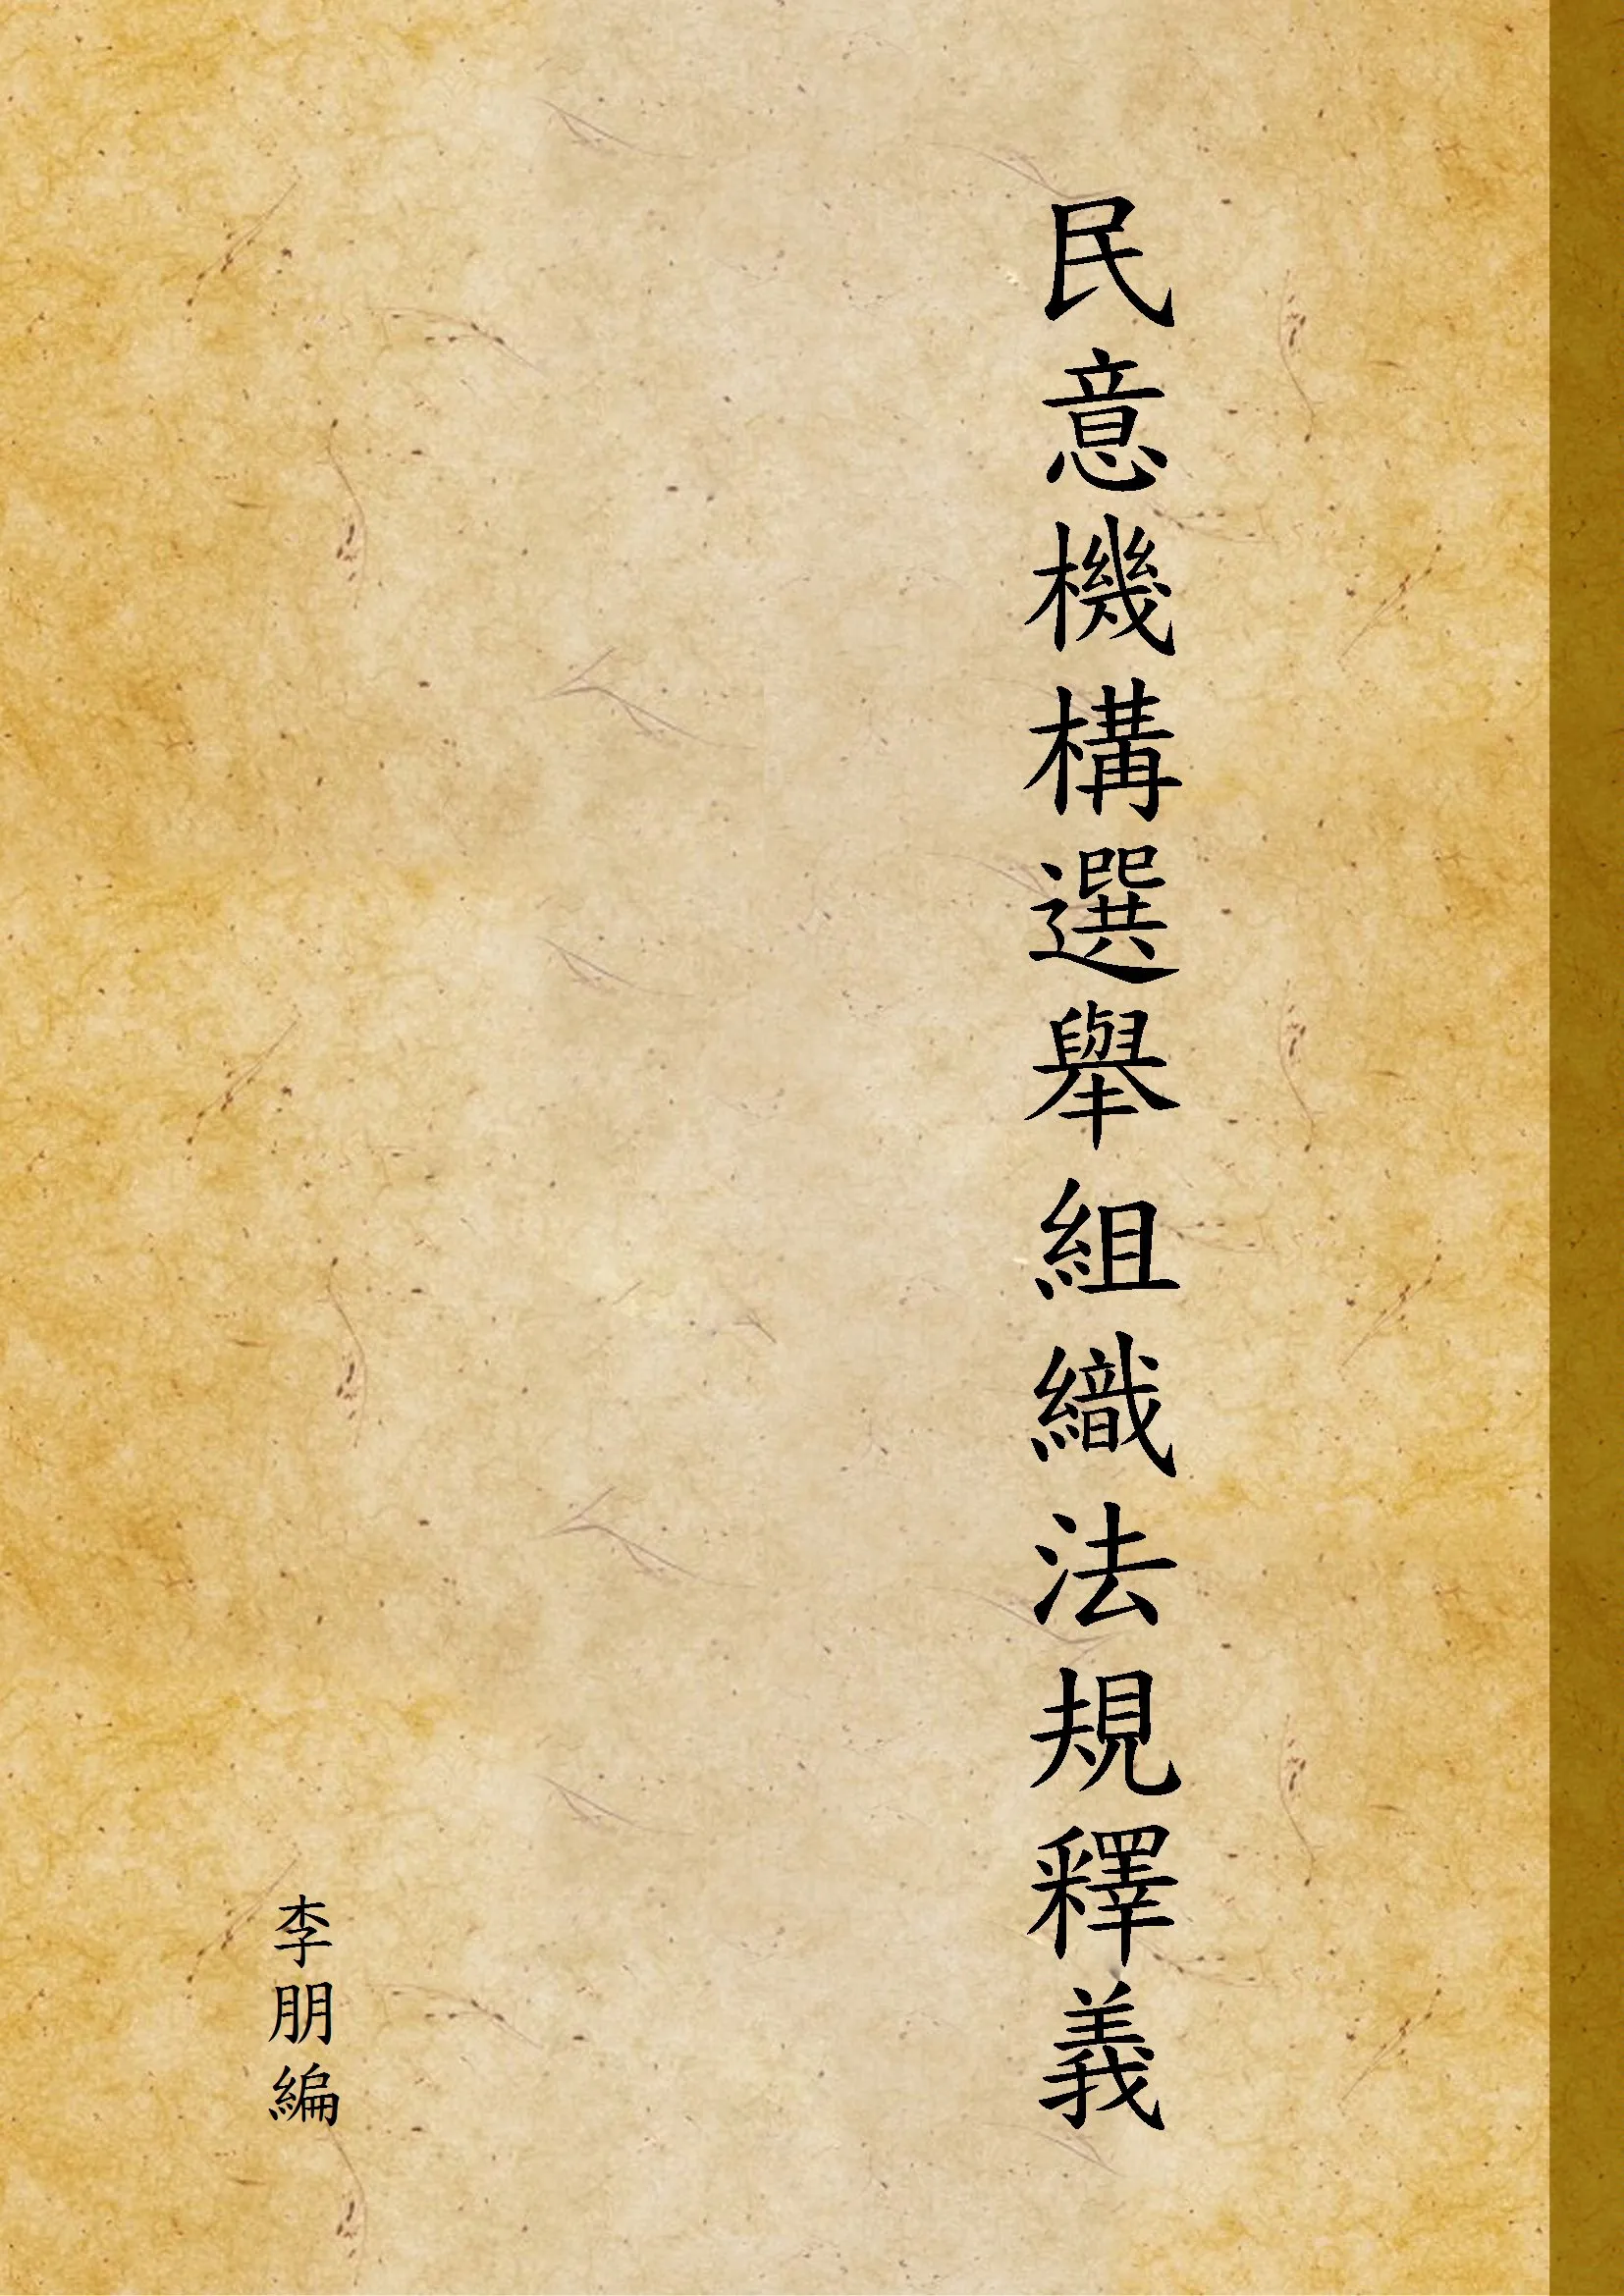 民意機構選舉組織法規釋義
李朋編